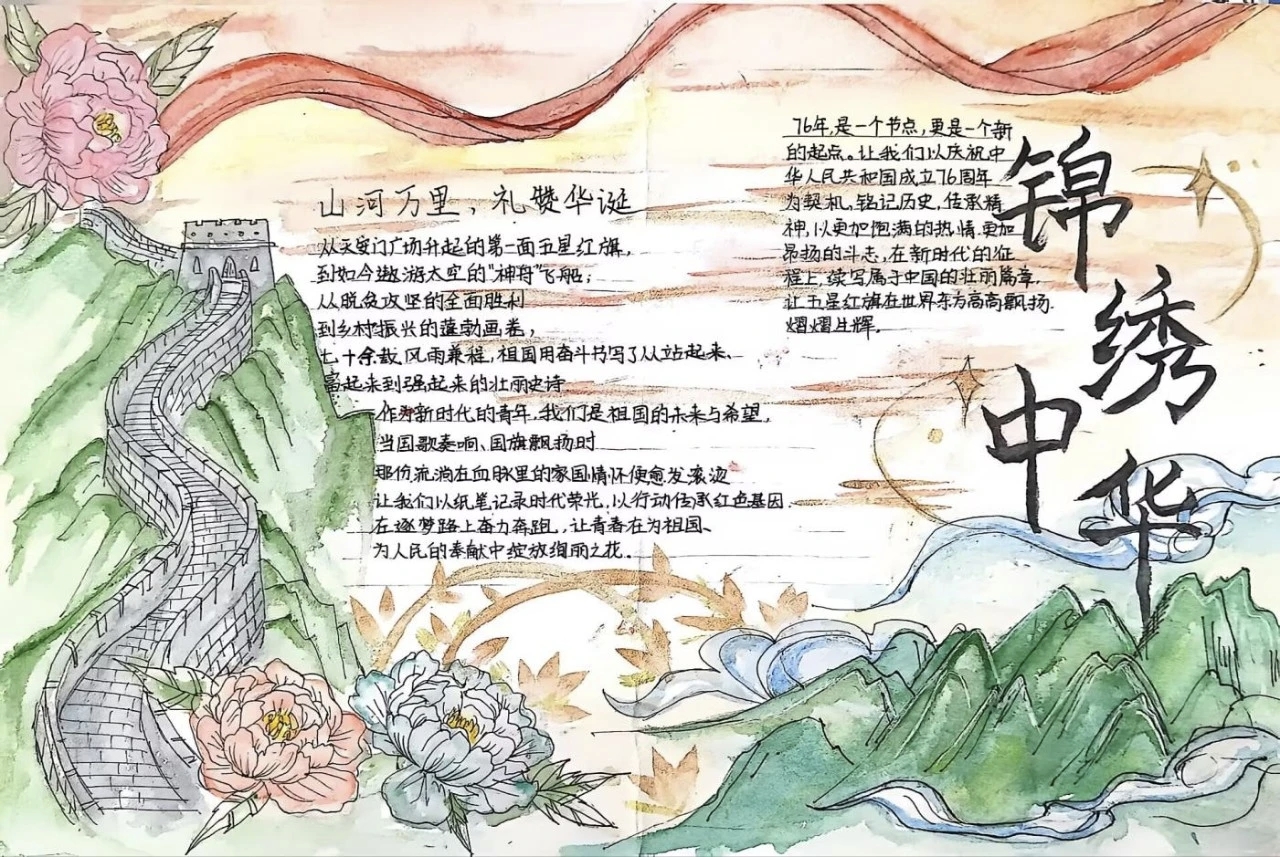 山河万里，礼赞华诞
从天安门广场升起的第一面五星红旗，
到如今遨游太空的“神舟”飞船；
从脱贫攻坚的全面胜利
到乡村振兴的蓬勃画卷，
七十余载，风雨兼程，祖国用奋斗书写了从站起来、
富起来到强起来的壮丽史诗
作为新时代的青年，我们是祖国的未来与希望，
当国歌奏响、国旗飘扬时
那份流淌在血脉里的家国情怀便愈发滚烫
让我们以纸笔记录时代荣光，以行动传承红色基因
在逐梦路上奋力奔跑，让青春在为祖国、
为人民的奉献中绽放绚丽之花。
76年，是一个节点，更是一个新
的起点。让我们以庆祝中
华人民共和国成立76周年
为契机，铭记历史，传承精
神，以更加饱满的热情，更加
昂扬的斗志，在新时代的征
程上，续写属于中国的壮丽篇章，
让五星红旗在世界东方高高飘扬.
熠熠生辉。
锦绣
中华